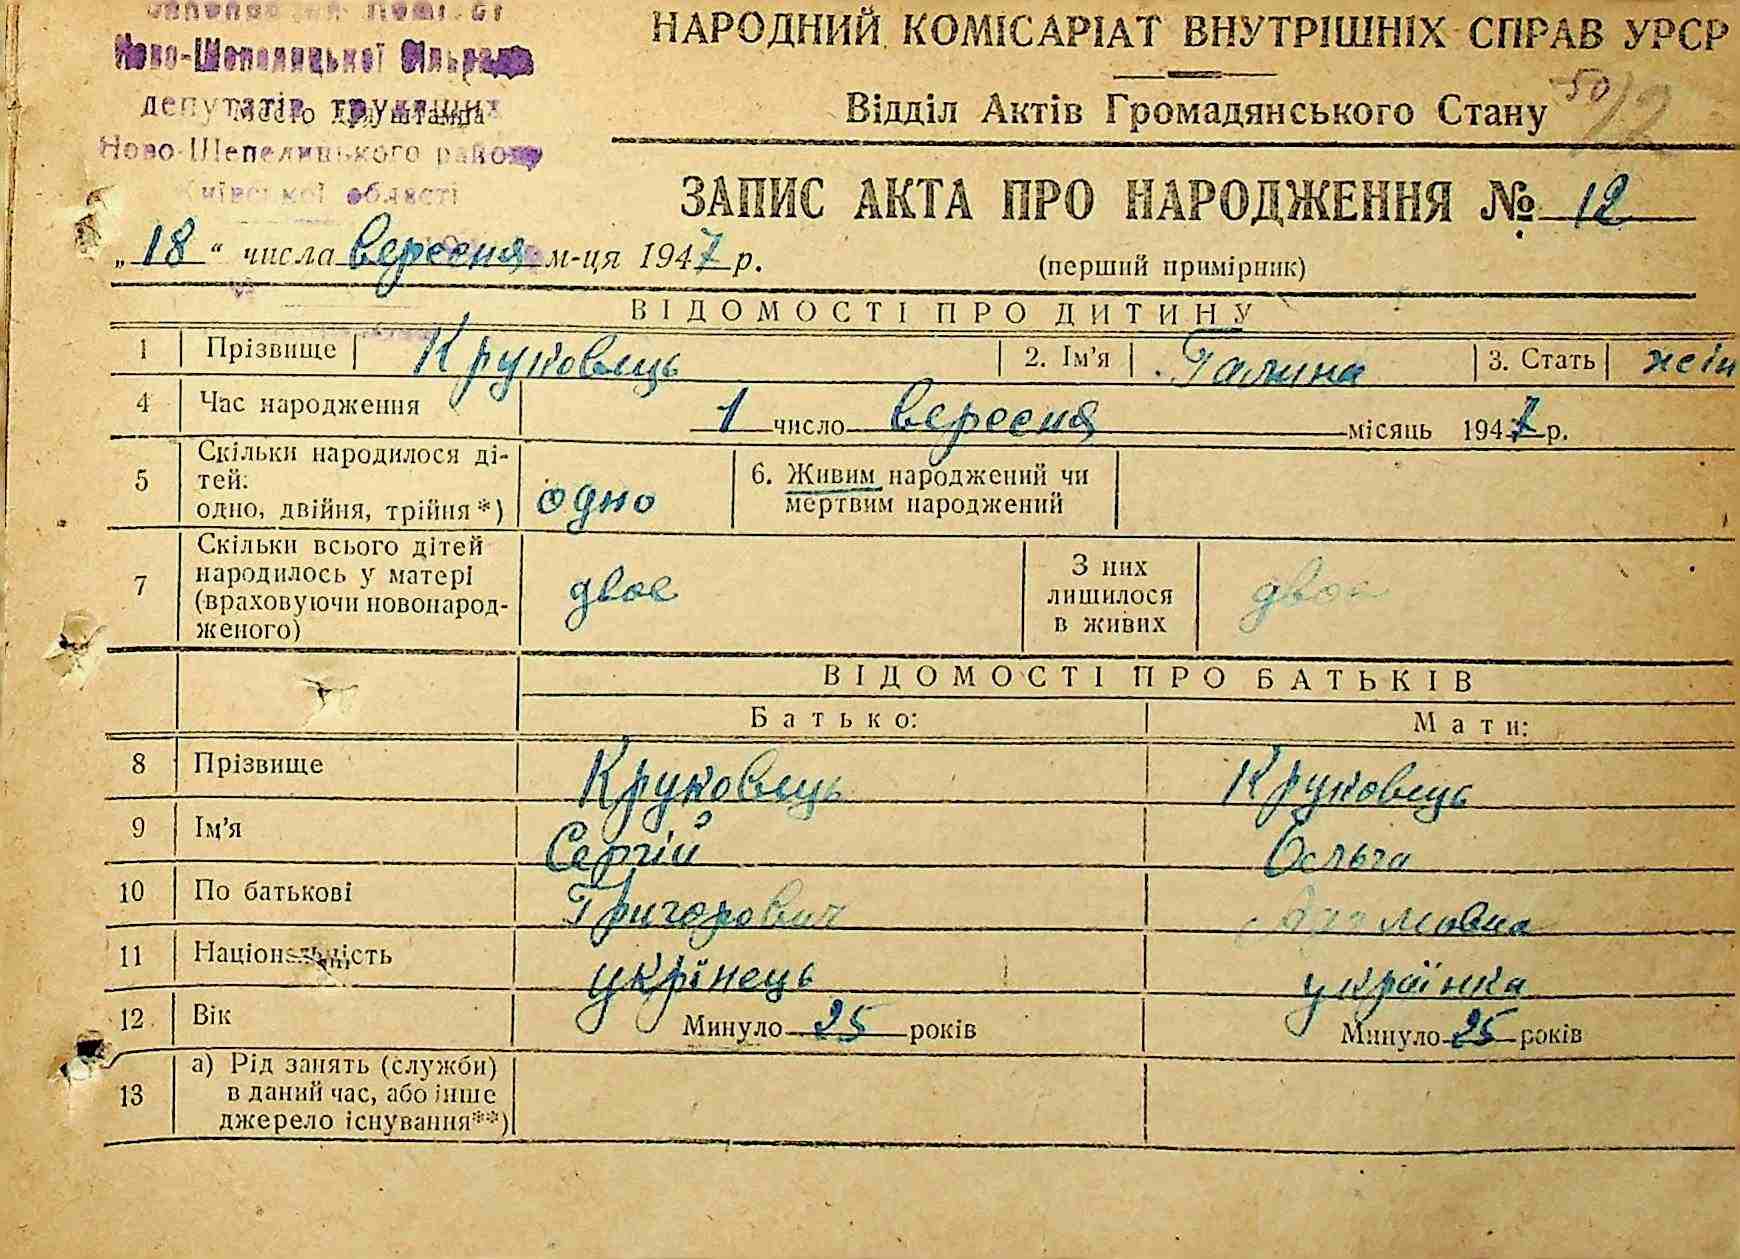 Ново-Шепелицької Сільради
депутатів трудящих
Місто для штампа
Ново-Шепелицького району
Київської області
НАРОДНИЙ КОМІСАРІАТ ВНУТРІШНІХ СПРАВ УРСР
Відділ Актів Громадянського Стану
50/12
ЗАПИС АКТА ПРО НАРОДЖЕННЯ № 12
„18“ числа вересня м-ця 1947 р.
(перший примірник)
ВІДОМОСТІ ПРО ДИТИНУ
1 Прізвище Круковець 2. Ім'я Галина 3. Стать жін
4 Час народження 1 число вересня місяць 1947 р.
5 Скільки народилося ді-
тей:
одно, двійня, трійня *) одно
6. Живим народжений чи
мертвим народжений
7 Скільки всього дітей
народилось у матері
(враховуючи новонарод-
женого) двоє
З них
лишилося
в живих двоє
ВІДОМОСТІ ПРО БАТЬКІВ
Батько: Мати:
8 Прізвище Круковець Круковець
9 Ім'я Сергій Ольга
10 По батькові Григорович
11 Національність укрїнець українка
12 Вік Минуло 25 років Минуло 25 років
13 а) Рід занять (служби)
в даний час, або інше
джерело існування**)